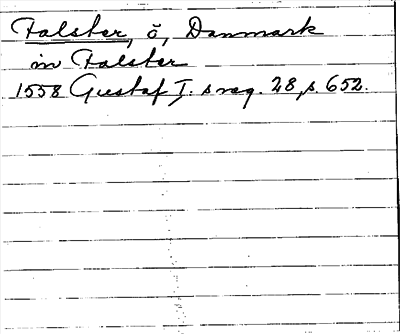 Falster, ö, Danmark
in Falster
1558 Gustaf I. s reg. 28, s. 652.